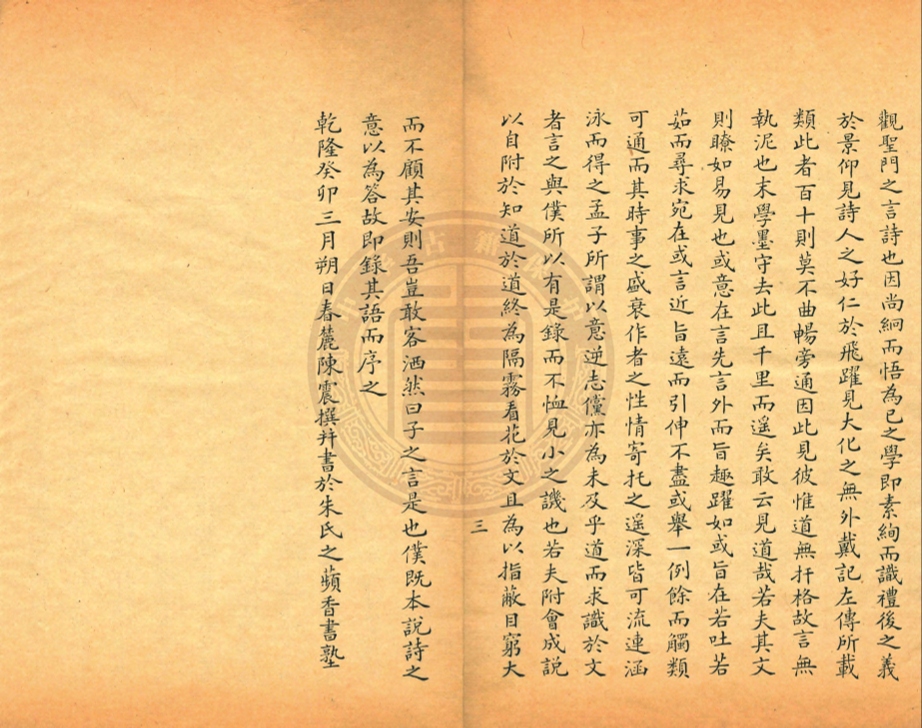 觀聖門之言詩也因尚絅而悟為已之學即素絢而識禮後之義
於景仰見詩人之好仁於飛躍見大化之無外戴記左傳所載
類此者百十則莫不曲暢旁通因此見彼惟道無扞格故言無
執泥也末學墨守去此且千里而遥矣敢云見道哉若夫其文
則瞭如易見也或意在言先言外而旨趣躍如或旨在若吐若
茹而尋求宛在或言近旨遠而引伸不盡或舉一例餘而觸類
可通而其時事之盛衰作者之性情寄托之遥深皆可流連涵
泳而得之孟子所謂以意逆志儻亦為未及乎道而求識於文
者言之與僕所以有是錄而不恤見小之譏也若夫附會成說
以自附於知道於道終為隔霧看花於文且為以指蔽目窮大
三
而不顧其安則吾豈敢客洒然曰子之言是也僕既本說詩之
意以為答故即錄其語而序之
乾隆癸卯三月朔日春麓陳震撰并書於朱氏之蘋香書塾